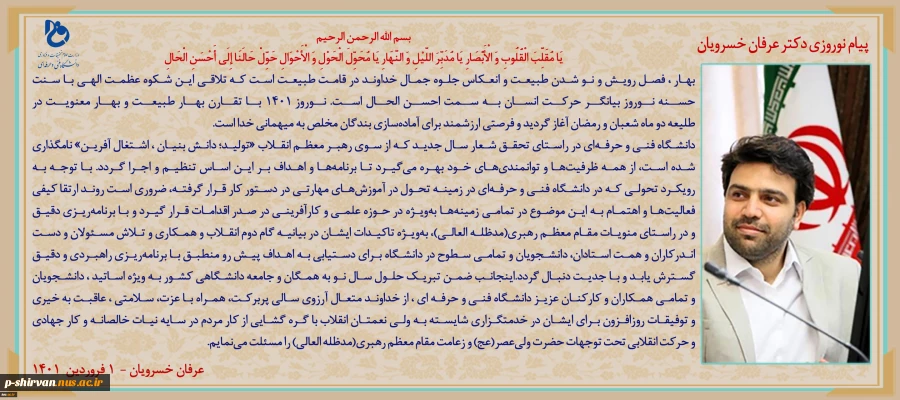 پیام نوروزی دکتر عرفان خسرویان
بسم الله الرحمن الرحیم
یَا مُقَلِّبَ الْقُلُوبِ وَ الْأَبْصَارِ یَا مُدَبِّرَ اللَّیْلِ وَ النَّهَارِ یَا مُحَوِّلَ الْحَوْلِ وَ الْأَحْوَالِ حَوِّلْ حَالَنَا إِلَى أَحْسَنِ الْحَالِ
بهار ، فصل رویش و نو شدن طبیعت و انعکاس جلوه جمال خداوند در قامت طبیعت است که تلاقی این شکوه عظمت الهی با سنت
حسنه نوروز بیانگر حرکت انسان به سمت احسن الحال است. نوروز ۱۴۰۱ با تقارن بهار طبیعت و بهار معنویت در
طلیعه دو ماه شعبان و رمضان آغاز گردید و فرصتی ارزشمند برای آماده‌سازی بندگان مخلص به میهمانی خدا است.
دانشگاه فنی و حرفه‌ای در راستای تحقق شعار سال جدید که از سوی رهبر معظم انقلاب «تولید؛ دانش بنیان ، اشتغال آفرین» نامگذاری
شده است، از همه ظرفیت‌ها و توانمندی‌های خود بهره می‌گیرد تا برنامه‌ها و اهداف بر این اساس تنظیم و اجرا گردد. با توجه به
رویکرد تحولی که در دانشگاه فنی و حرفه‌ای در زمینه تحول در آموزش‌های مهارتی در دستور کار قرار گرفته، ضروری است روند ارتقا کیفی
فعالیت‌ها و اهتمام به این موضوع در تمامی زمینه‌ها به‌ویژه در حوزه علمی و کارآفرینی در صدر اقدامات قرار گیرد و با برنامه‌ریزی دقیق
و در راستای منویات مقام معظم رهبری(مدظله العالی)، به‌ویژه تاکیدات ایشان در بیانیه گام دوم انقلاب و همکاری و تلاش مسئولان و دست
اندرکاران و همت استادان، دانشجویان و تمامی سطوح در دانشگاه برای دستیابی به اهداف پیش رو منطبق با برنامه‌ریزی راهبردی و دقیق
گسترش یابد و با جدیت دنبال گردد.اینجانب ضمن تبریک حلول سال نو به همگان و جامعه دانشگاهی کشور به ویژه اساتید ، دانشجویان
و تمامی همکاران و کارکنان عزیز دانشگاه فنی و حرفه ای ، از خداوند متعال آرزوی سالی پربرکت، همراه با عزت، سلامتی ، عاقبت به خیری
و توفیقات روزافزون برای ایشان در خدمتگزاری شایسته به ولی نعمتان انقلاب با گره گشایی از کار مردم در سایه نیات خالصانه و کار جهادی
و حرکت انقلابی تحت توجهات حضرت ولی‌عصر(عج) و زعامت مقام معظم رهبری(مدظله العالی) را مسئلت می‌نمایم.
عرفان خسرویان - ۱ فروردین ۱۴۰۱
p-shirvan.nus.ac.ir